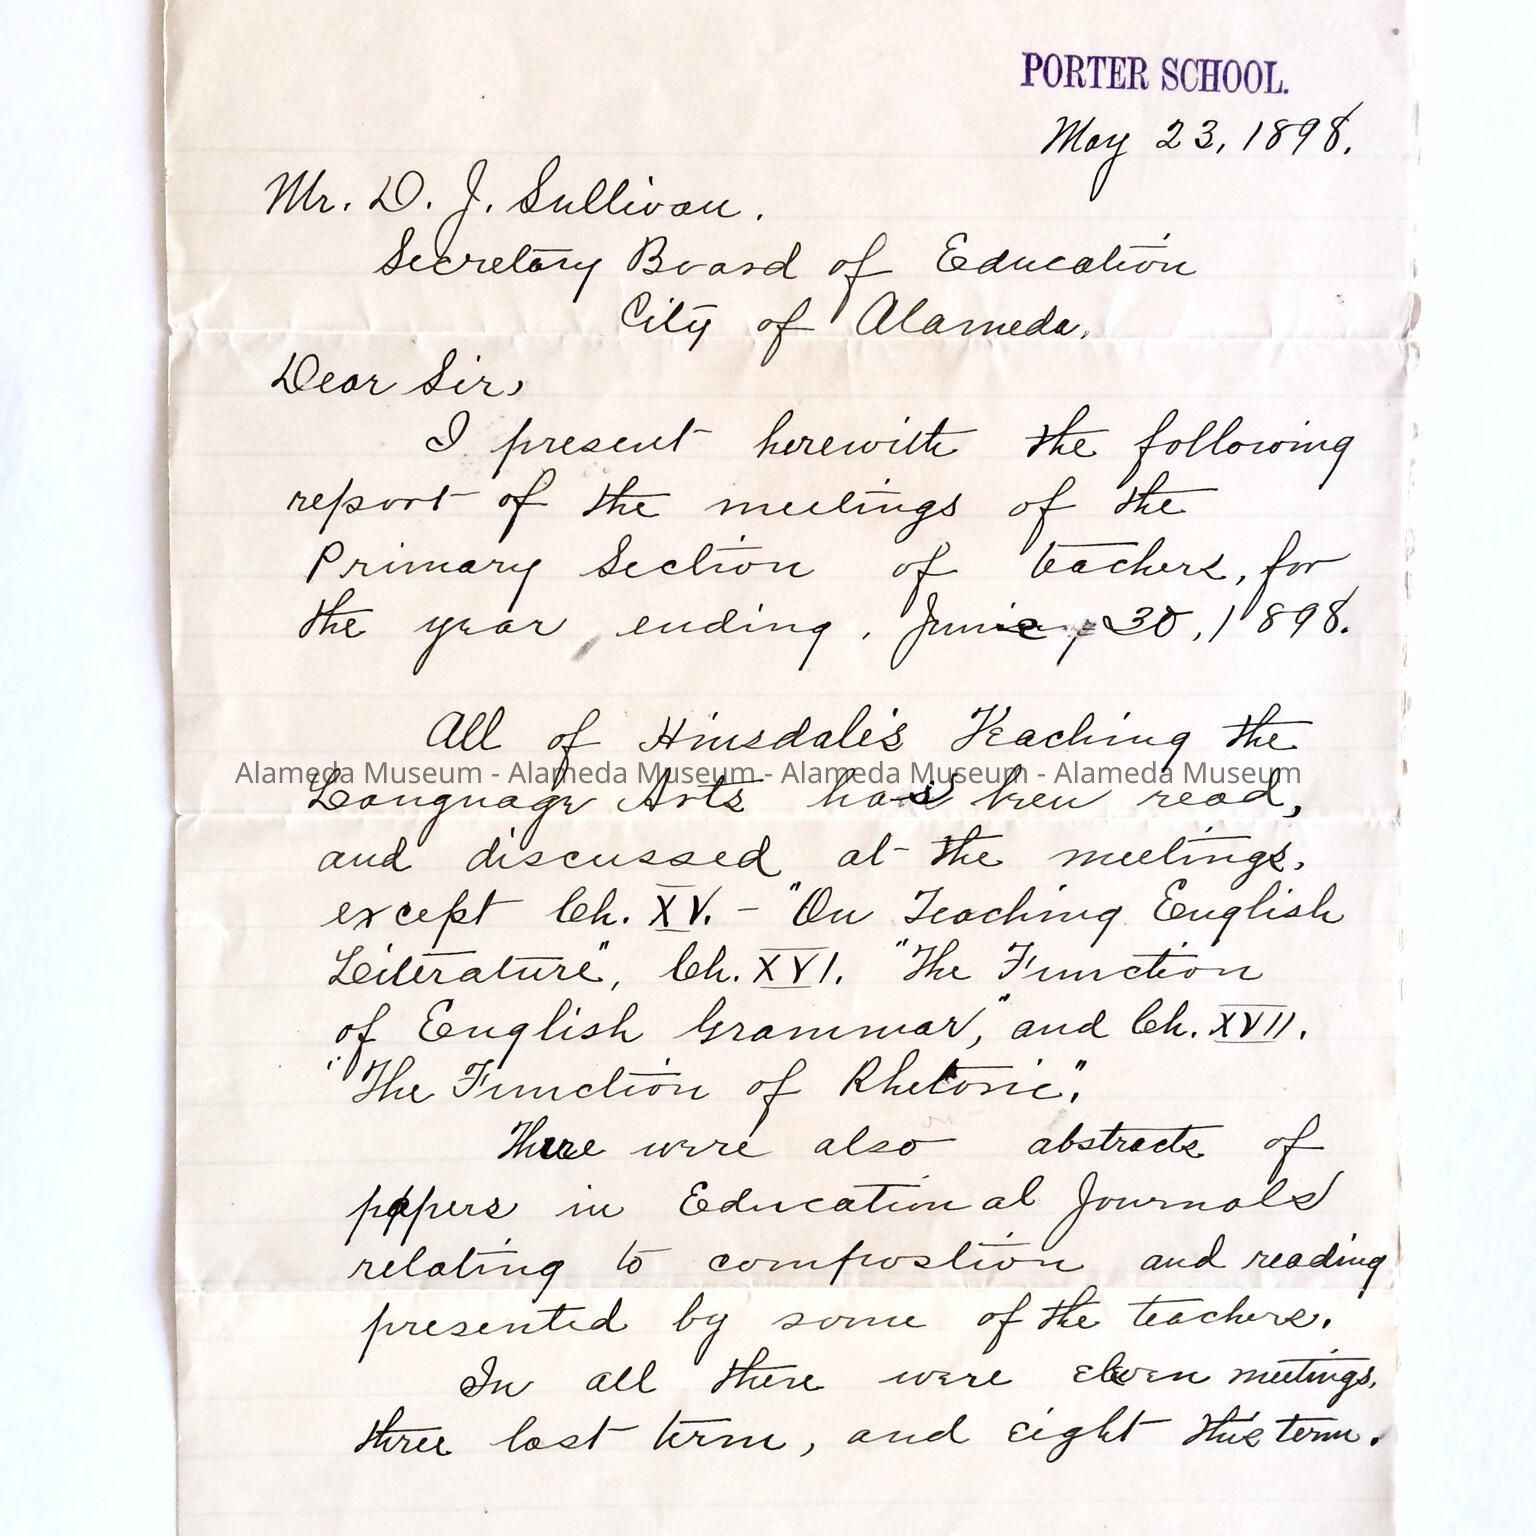 PORTER SCHOOL.
May 23, 1898.
Mr. D. J. Sullivan.
Secretary Board of Education
City of Alameda.
Dear Sir,
I present herewith the following
report of the meetings of the
Primary Section of teachers, for
the year ending, June, 30, 1898.
All of Hinsdale's Teaching the
Alameda Museum - Alameda Museum - Alameda Museum - Alameda Museum
Language Arts has been read,
and discussed at the meetings,
except Ch. XV. - "On Teaching English
Literature", Ch. XVI. "The Function
of English Grammar," and Ch. XVII.
"The Function of Rhetoric".
There were also abstracts of
papers in Educational Journals
relating to compostion and reading
presented by some of the teachers.
In all there were eleven meetings,
three last term, and eight this term.